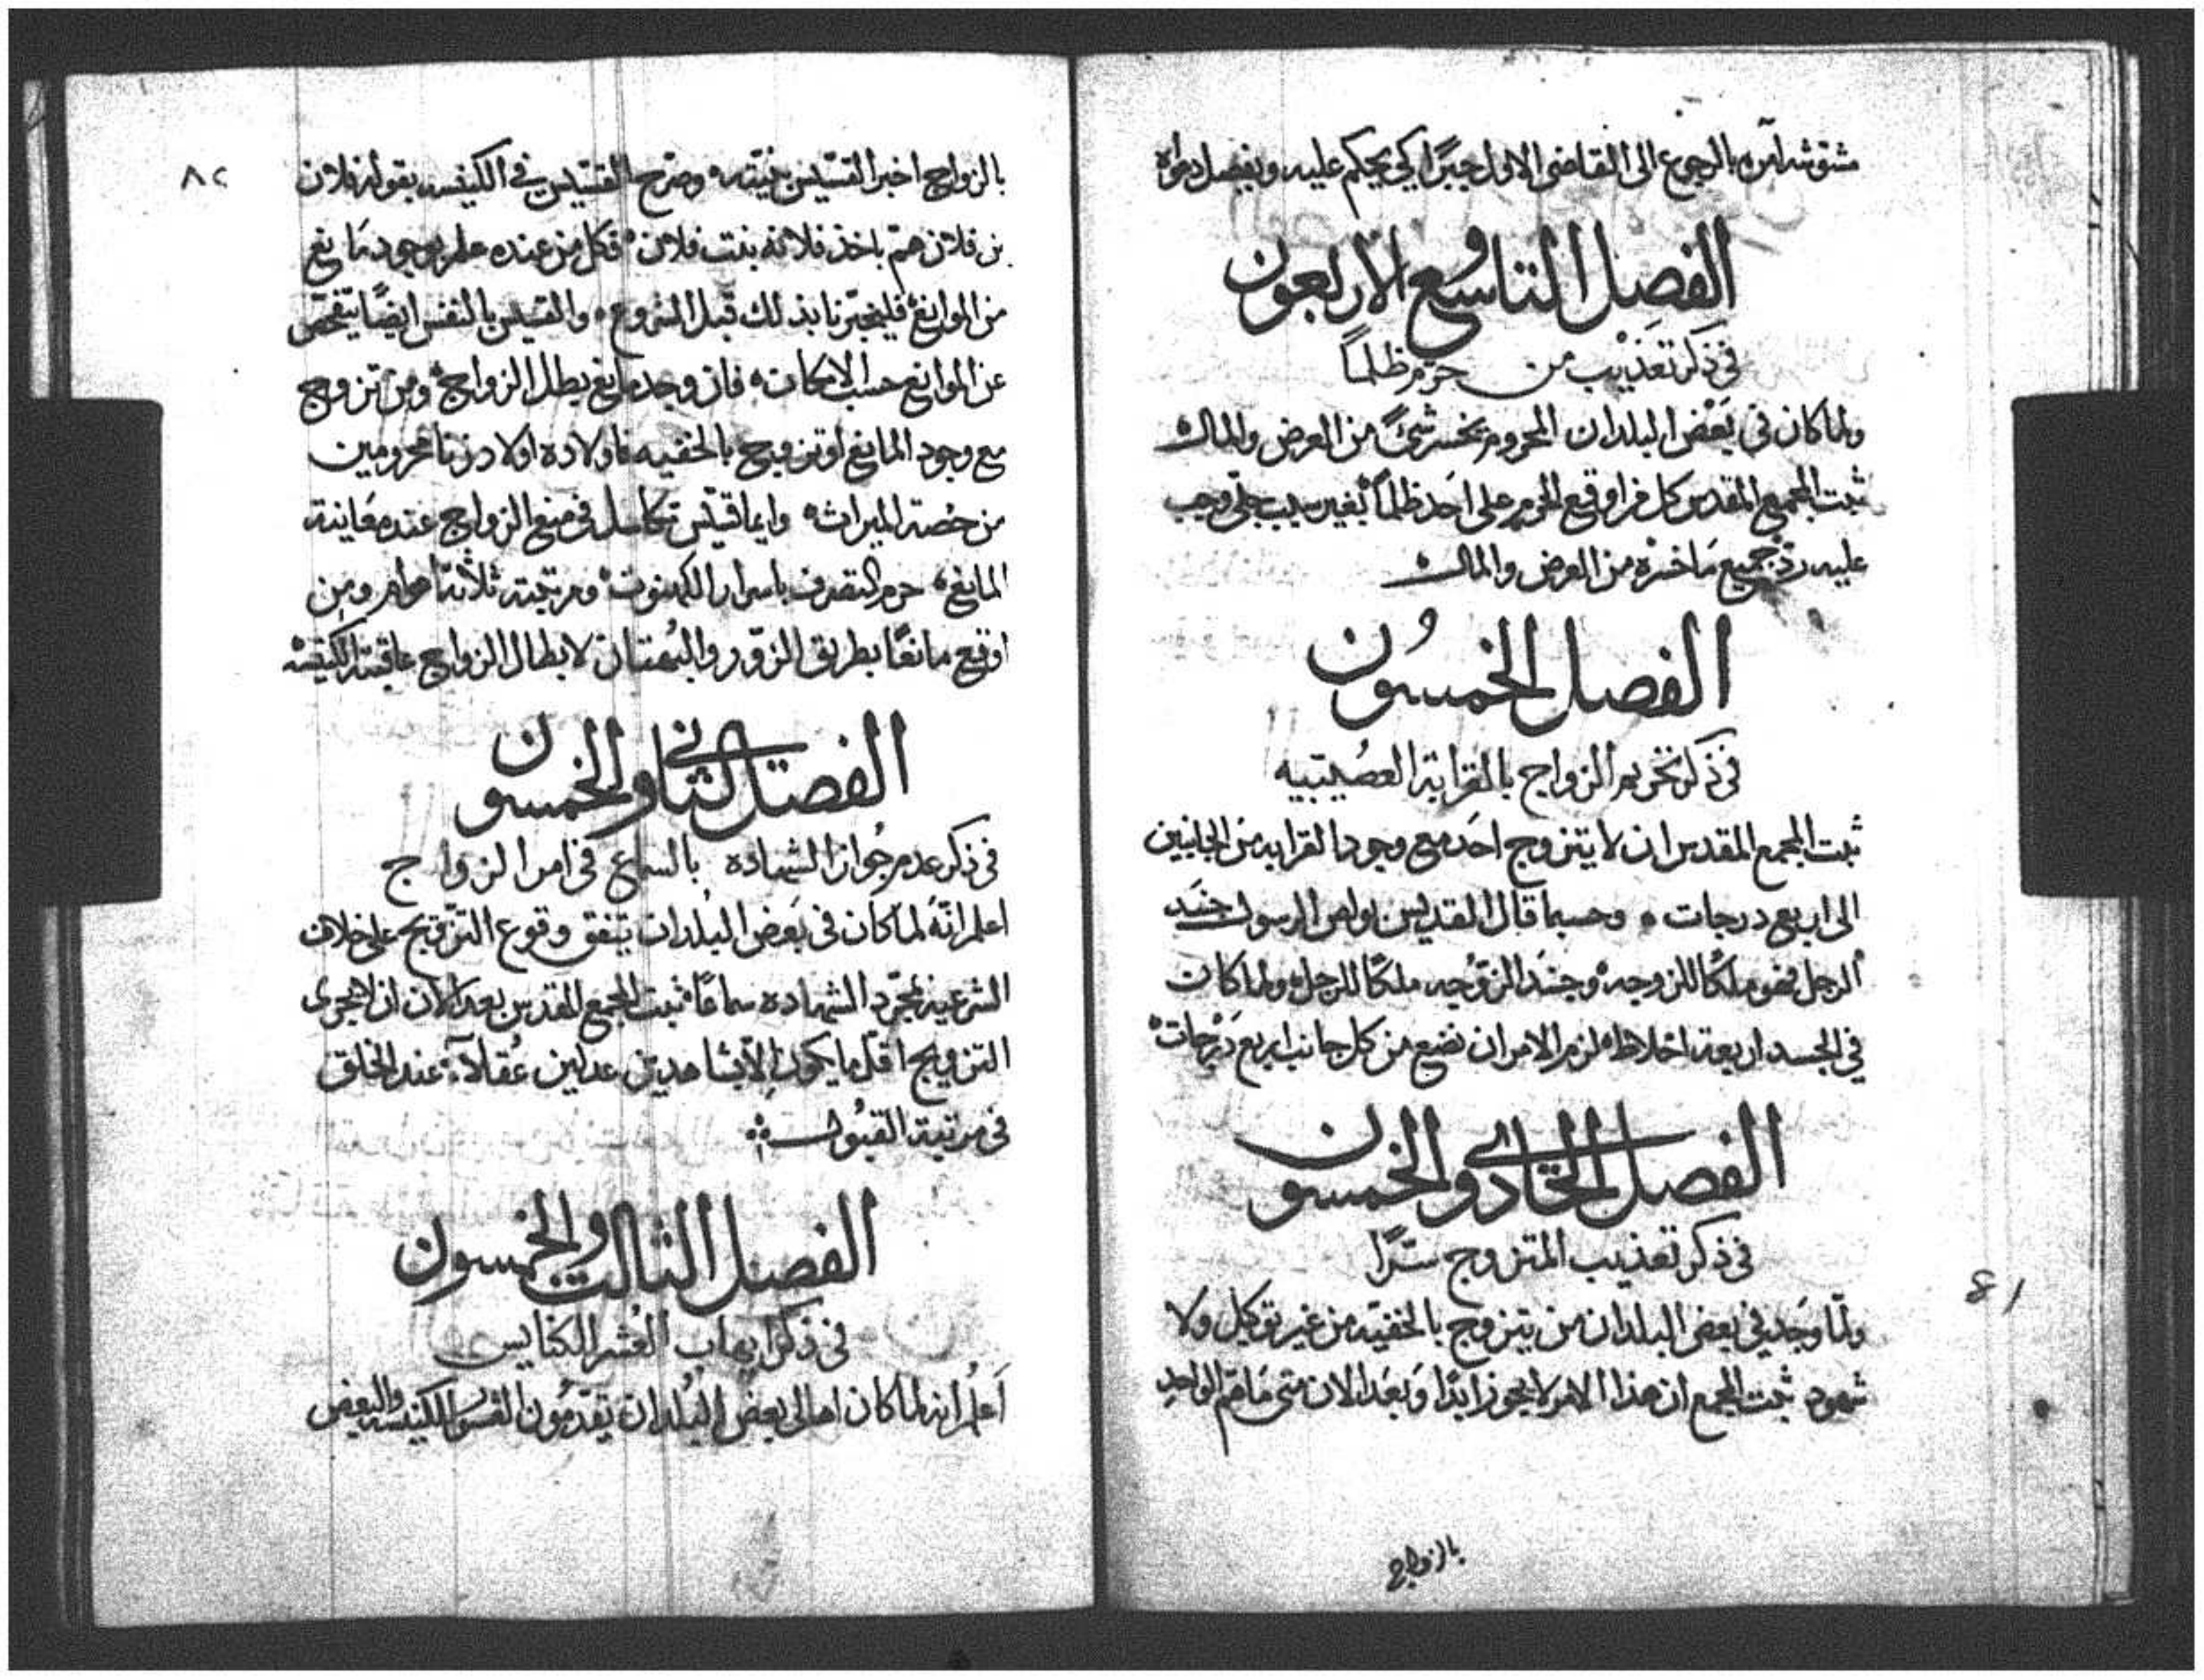 مشوشه آمره بالرجوع الى القاضى الاول جبرًا كي يحكم عليه ويفصل دعواه
الفصل التاسع والاربعون
فى ذكر تعذيب من حرم ظلماً
ولما كان فى بعض البلدان المحروم يخسر شئً من العرض والمال
ثبت المجمع المقدس كل من اوقع الحرم على احد ظلماً بغير سبب جلى وجب
عليه ردّ جميع ما خسره من العرض والمال
الفصل الخمسُون
فى ذكر تحريم الزواج بالقرابة العصيبيه
ثبت المجمع المقدس ان لا يتزوج احد مع وجود القرابه من الجانبين
الى اربع درجات ۰ وحسبما قال القديس بولص الرسول جسَد
الرجل فهو ملكًا للزوجه وجسَد الزوجيه ملكًا للرجل ولما كان
في الجسد اربعة اخلاط لزم الامر ان نضع من كل جانب اربع درجات
الفصل الحادى والخمسون
فى ذكر تعذيب المتزوج سرًّا
ولمّا وجد فى بعض البلدان من يتزوج بالخفيّه من غير توكيل ولا
شهود ثبت المجمع ان هذا الامر لا يجوز ابدًا وبعد الان متى ما همّ الواحد
81
بالزواج
٨٢
بالزواج اخبر القسّيس بنيّته وصرّح القسّيس فى الكنيسه بقوله فلان
بن فلان همّ باخذ فلانه بنت فلان فكل من عنده علم بوجود مانع
من الموانع فليخبّرنا بذلك قبل الشروع ۰ والقسيس بالنفس ايضًا يتفحّص
عن الموانع حسب الامكان ۰ فان وجد مانع بطل الزواج ومن تزوج
مع وجود المانع او تزوج بالخفيه فاولاده اولاد زنا محرومين
من حصة الميراث ۰ وايما قسّيس تكاسل فى منع الزواج عند معاينة
المانع حرم التصرف باسرار الكهنوت ومرتبته ثلاثة اعوام ومن
اوقع مانعًا بطريق الزوّر والبُهتان لابطال الزواج عاقبته الكنيسه
الفصل الثانى والخمسون
فى ذكر عدم جُواز الشهاده بالسماع فى امر الزواج
اعلم انّه لما كان فى بعض البُلدان يتفق وقوع التزويج على خلاف
الشرعية بمجرّد الشهاده سماعًا ثبت المجمع المقدس بعد الان ان لا يجرى
التزويج اقلّ ما يكون الّا بشاهدين عدلين عُقلآء عند الخلق
فى مرتبة القبُول
الفصل الثالث والخمسون
فى ذكر ايهاب العُشر الكنايس
اعلم انه لما كان اهالى بعض البُلدان يقدّمون العُشر للكنيسه والبعض